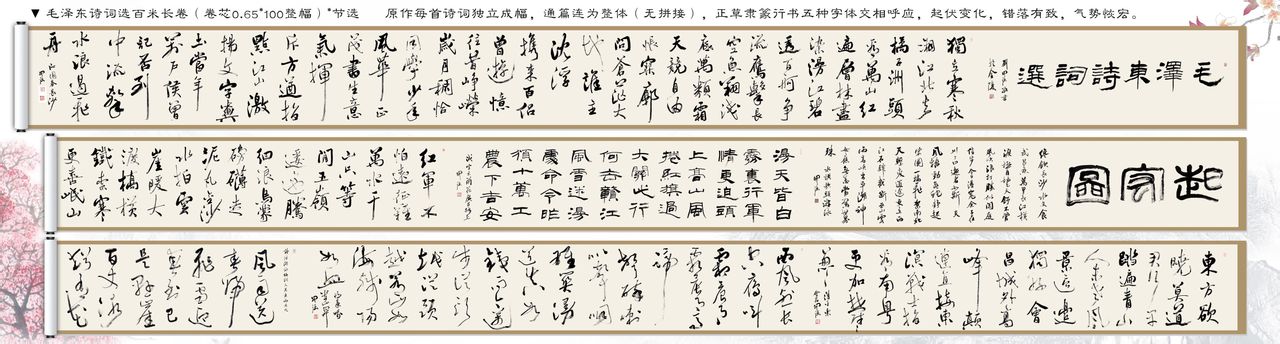 ▼ 毛泽东诗词选百米长卷（卷芯0.65*100整幅）*节选　　原作每首诗词独立成幅，通篇连为整体（无拼接），正草隶篆行书五种字体交相呼应，起伏变化，错落有致，气势恢宏。
毛澤東詩詞選
獨立寒秋
湘江北去
橘子洲頭
看萬山紅
遍層林盡
染漫江碧
透百舸爭
流鷹擊長
空魚翔淺
底萬類霜
天競自由
悵寥廓
問蒼茫大
地誰主
沈浮
攜來百侣
曾遊憶
往昔崢嶸
歲月稠恰
同學少年
風華正
茂書生意
氣揮
斥方遒指
點江山激
揚文字糞
土當年
萬户侯曾
記否到
中流擊
水浪遏飛
舟
起宏圖
才飲長沙水又食
武昌魚萬里長江橫
漫天皆白
雪裏行軍
情更迫頭
上高山風
捲紅旗過
大關此行
何去贛江
風雪迷漫
處命令昨
頒十萬工
農下吉安
紅軍不
怕遠征難
萬水千
山只等
閒五嶺
逶迤騰
細浪烏蒙
磅礴走
泥丸金沙
水拍雲
崖暖大
渡橋橫
鐵索寒
更喜岷山
東方欲
曉莫道
君行早
踏遍青山
人未老風
景這邊
獨好會
昌城外高
峰顛
連直接東
溟戰士指
看南粤
更加鬱鬱
葱葱
西風烈長
空雁叫
霜晨月
霜晨月馬
蹄
聲碎喇
叭聲咽
雄關漫
道真如
鐵而今邁
步從頭
越從頭
越蒼山如
海殘陽
如血
風雨送
春歸
飛雪迎
春到已
是懸崖
百丈冰
猶有花